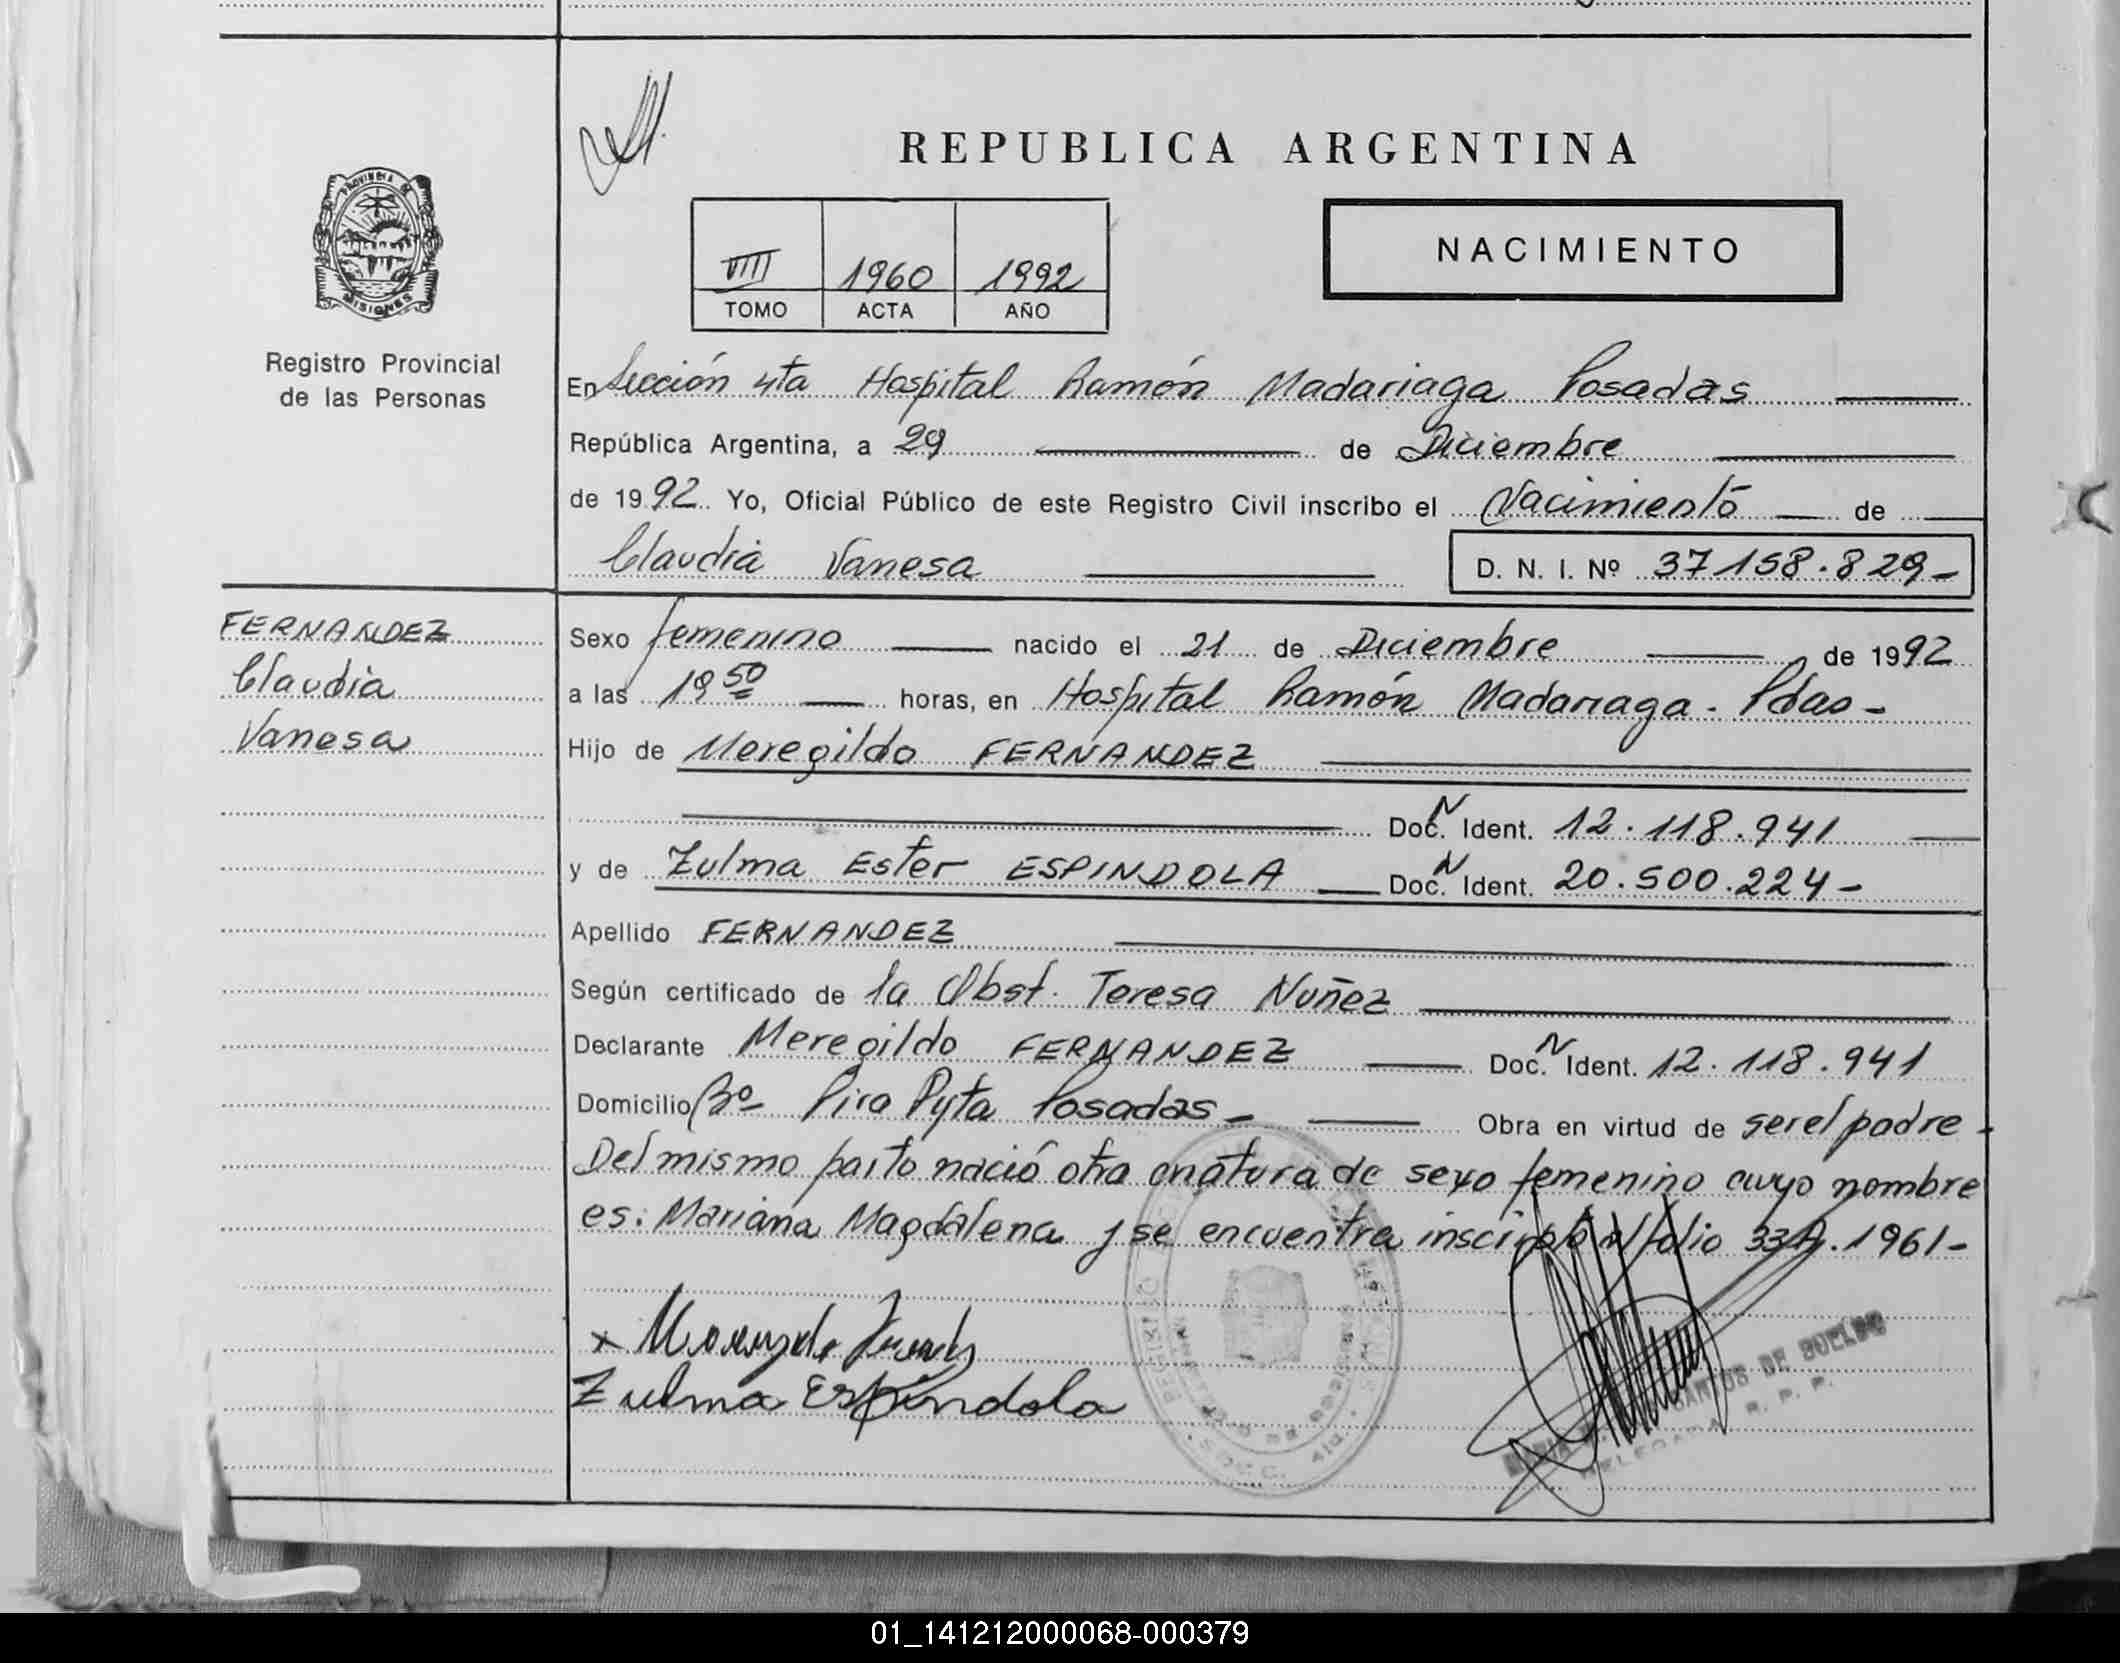 REPUBLICA ARGENTINA
PROVINCIA DE
MISIONES
Registro Provincial
de las Personas
VIII 1960 1992
TOMO ACTA AÑO
NACIMIENTO
En Sección 4ta Hospital Ramón Madariaga Posadas
República Argentina, a 29 de Diciembre
de 1992. Yo, Oficial Público de este Registro Civil inscribo el Nacimiento de
Claudia Vanesa D. N. I. Nº 37158.829-
FERNANDEZ
Claudia
Vanesa
Sexo femenino nacido el 21 de Diciembre de 1992
a las 19 50 horas, en Hospital Ramón Madariaga - Pdas-
Hijo de Meregildo FERNANDEZ
Doc. N Ident. 12.118.941
y de Zulma Ester ESPINDOLA Doc. N Ident. 20.500.224-
Apellido FERNANDEZ
Según certificado de la Obst. Teresa Nuñez
Declarante Meregildo FERNANDEZ Doc. N Ident. 12.118.941
Domicilio Bº Pira Pyta Posadas- Obra en virtud de ser el padre-
Del mismo parto nació otra criatura de sexo femenino cuyo nombre
es: Mariana Magdalena y se encuentra inscripta al folio 1961-
Zulma Espindola
SANTOS DE BUELDO
DELEGADA R. P. P.
01_141212000068-000379